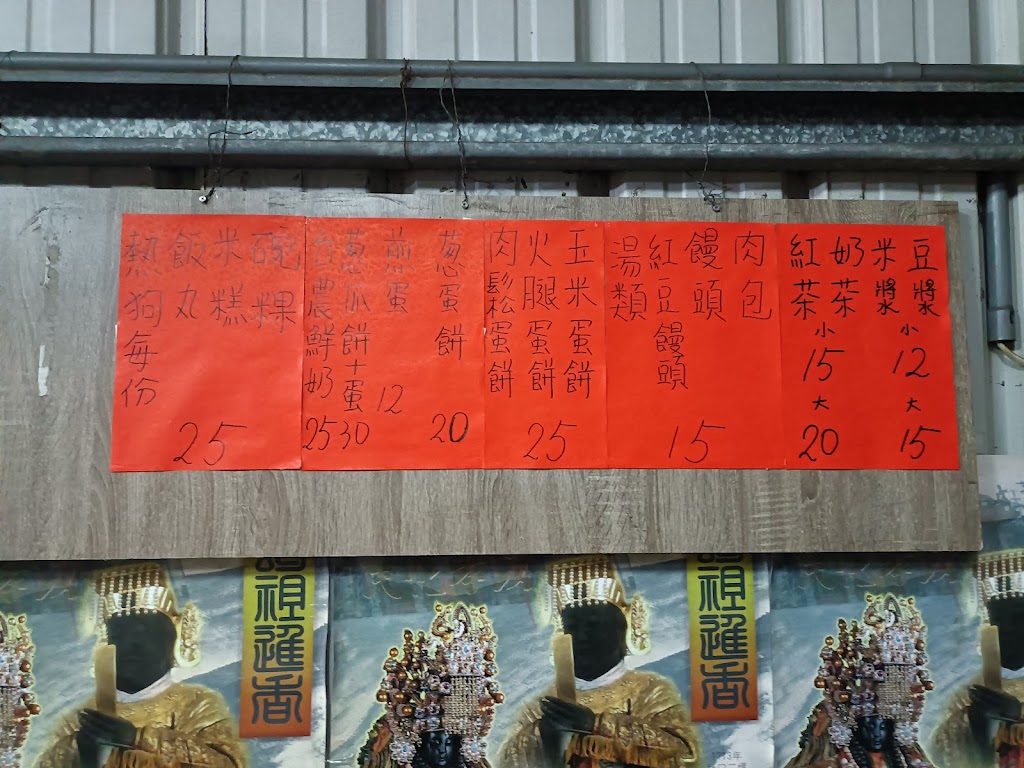 豆漿
小
12
大
15
米漿
奶茶
紅茶
小
15
大
20
肉包
饅頭
紅豆饅頭
湯類
15
玉米蛋餅
火腿蛋餅
肉鬆蛋餅
25
蔥蛋餅
20
煎蛋
12
蔥抓餅+蛋
30
台農鮮奶
25
碗粿
米糕
飯丸
熱狗每份
25
祖進香
祖進香